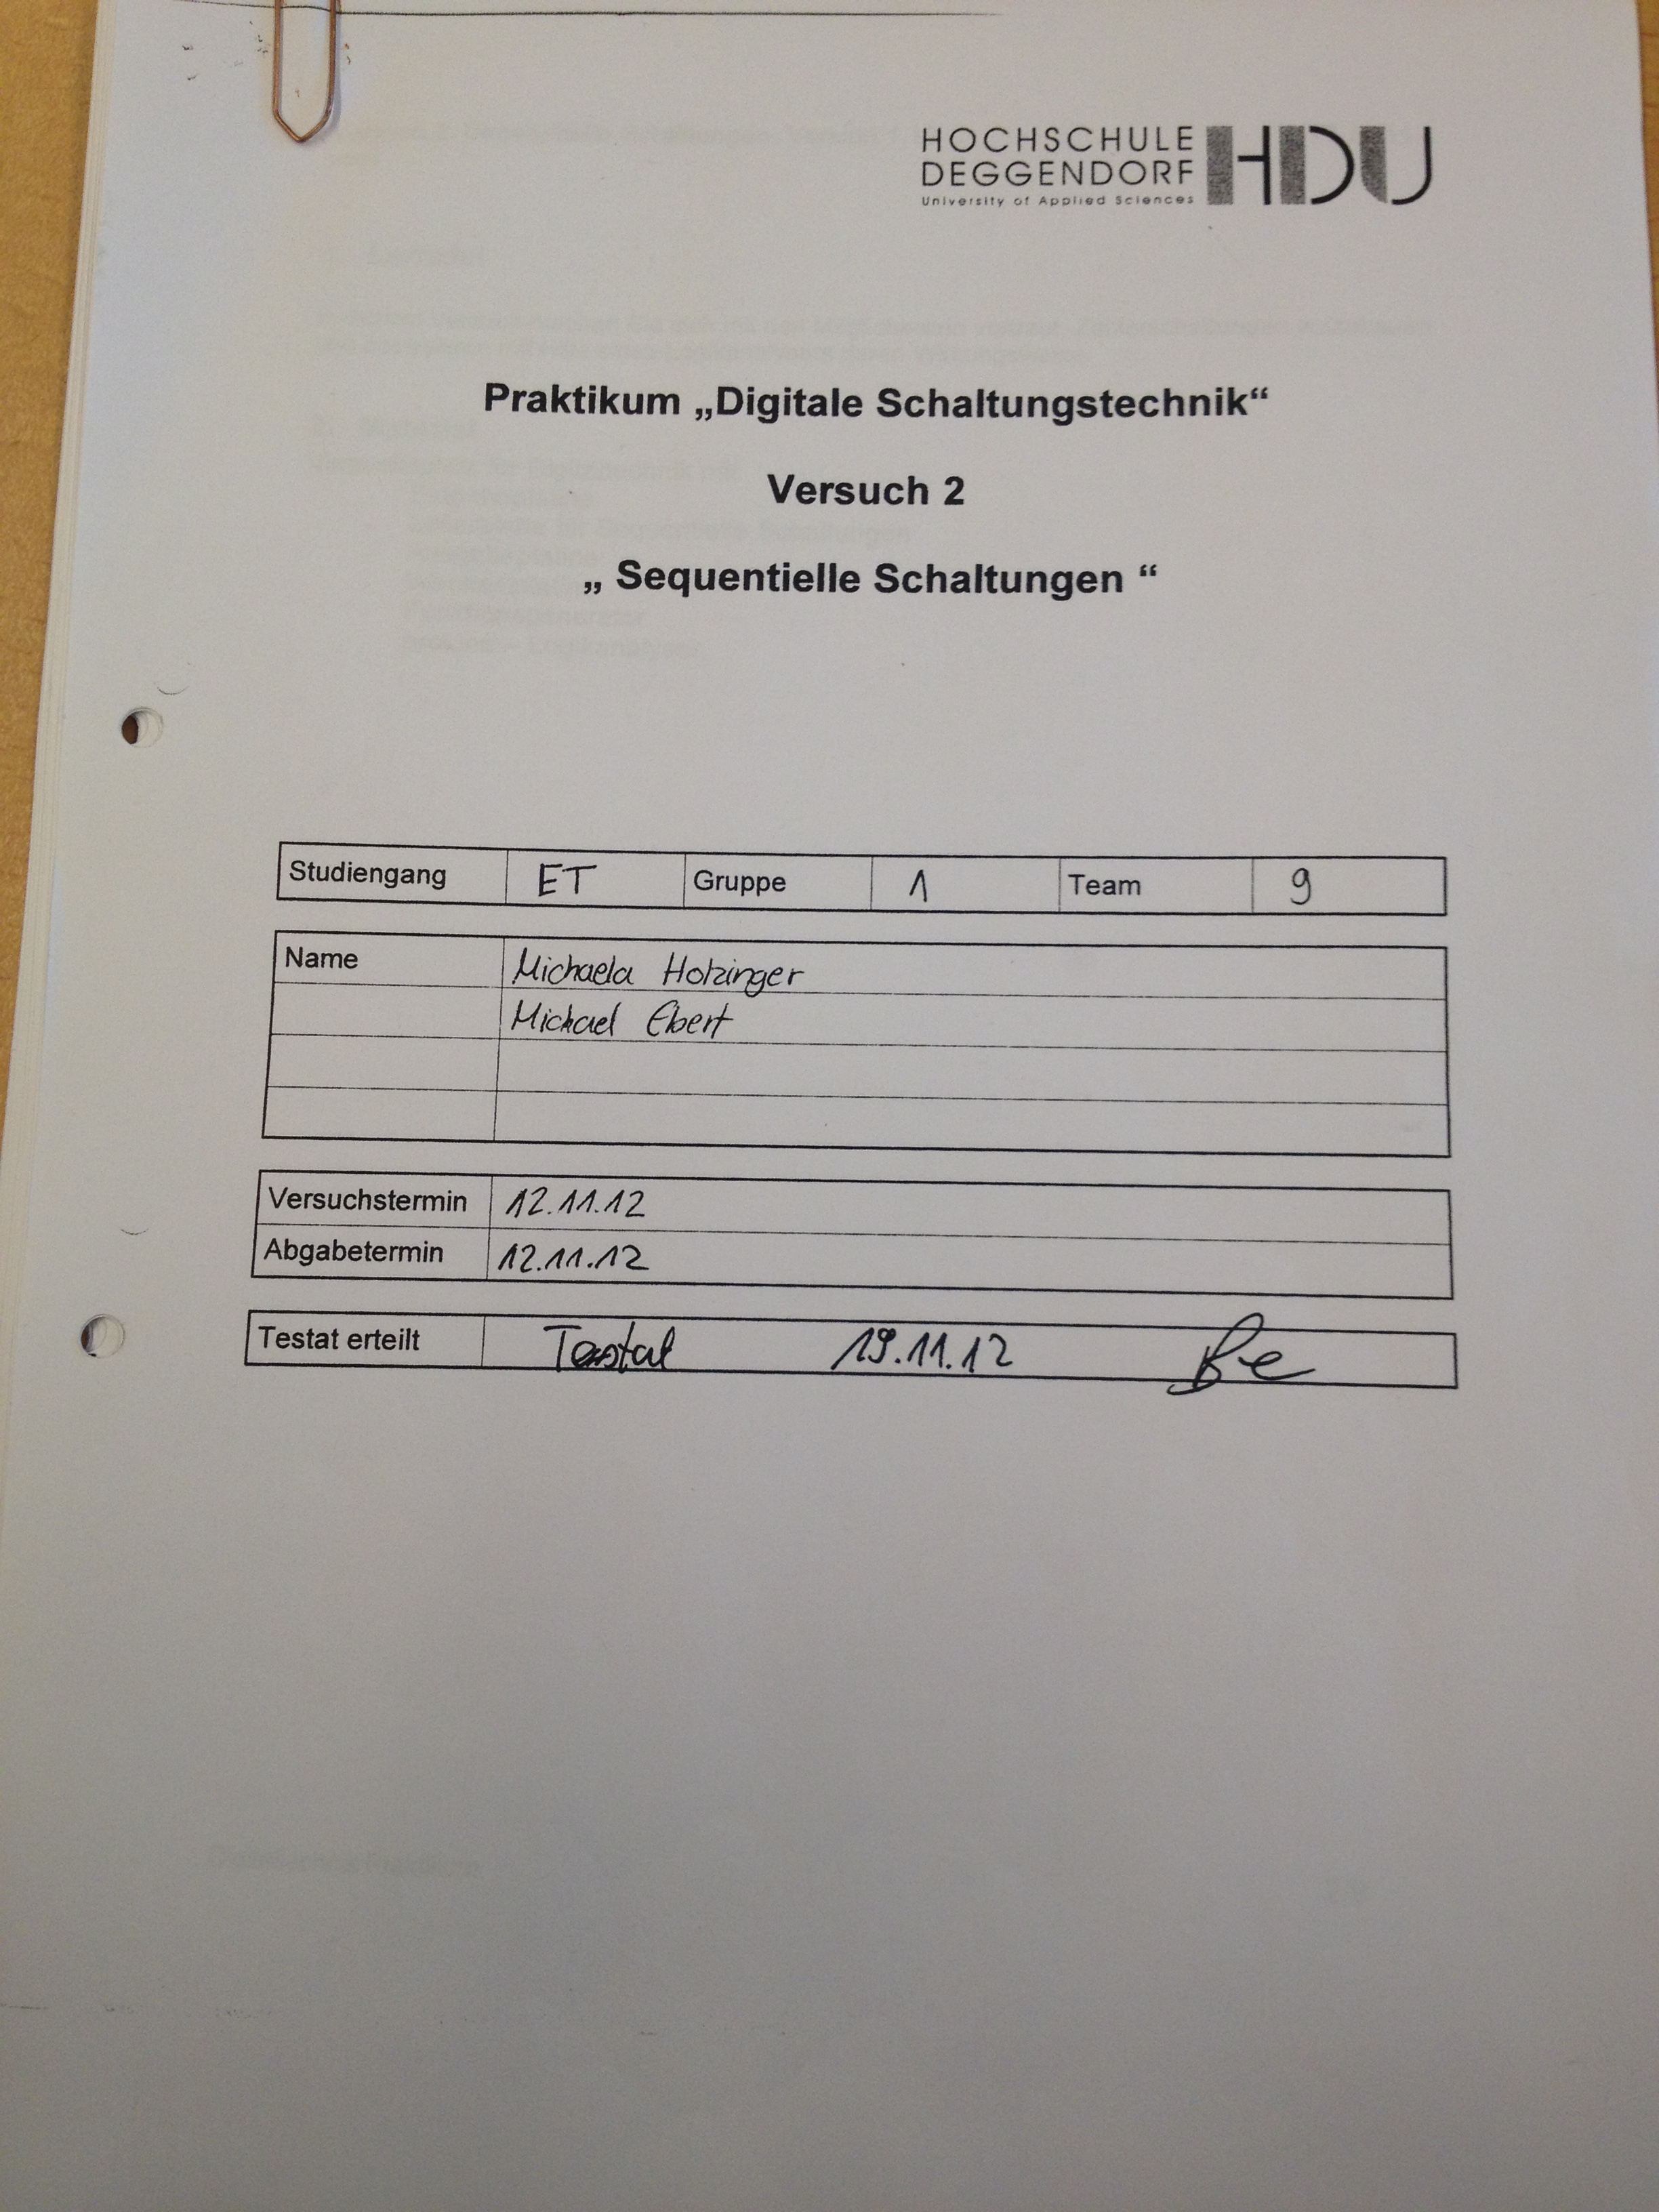 HOCHSCHULE
DEGGENDORF
University of Applied Sciences
HDU
Praktikum „Digitale Schaltungstechnik“
Versuch 2
„ Sequentielle Schaltungen “
Studiengang ET Gruppe 1 Team 9
Name Michaela Holzinger
Michael Ebert
Versuchstermin 12.11.12
Abgabetermin 12.11.12
Testat erteilt Testat 19.11.12 Be